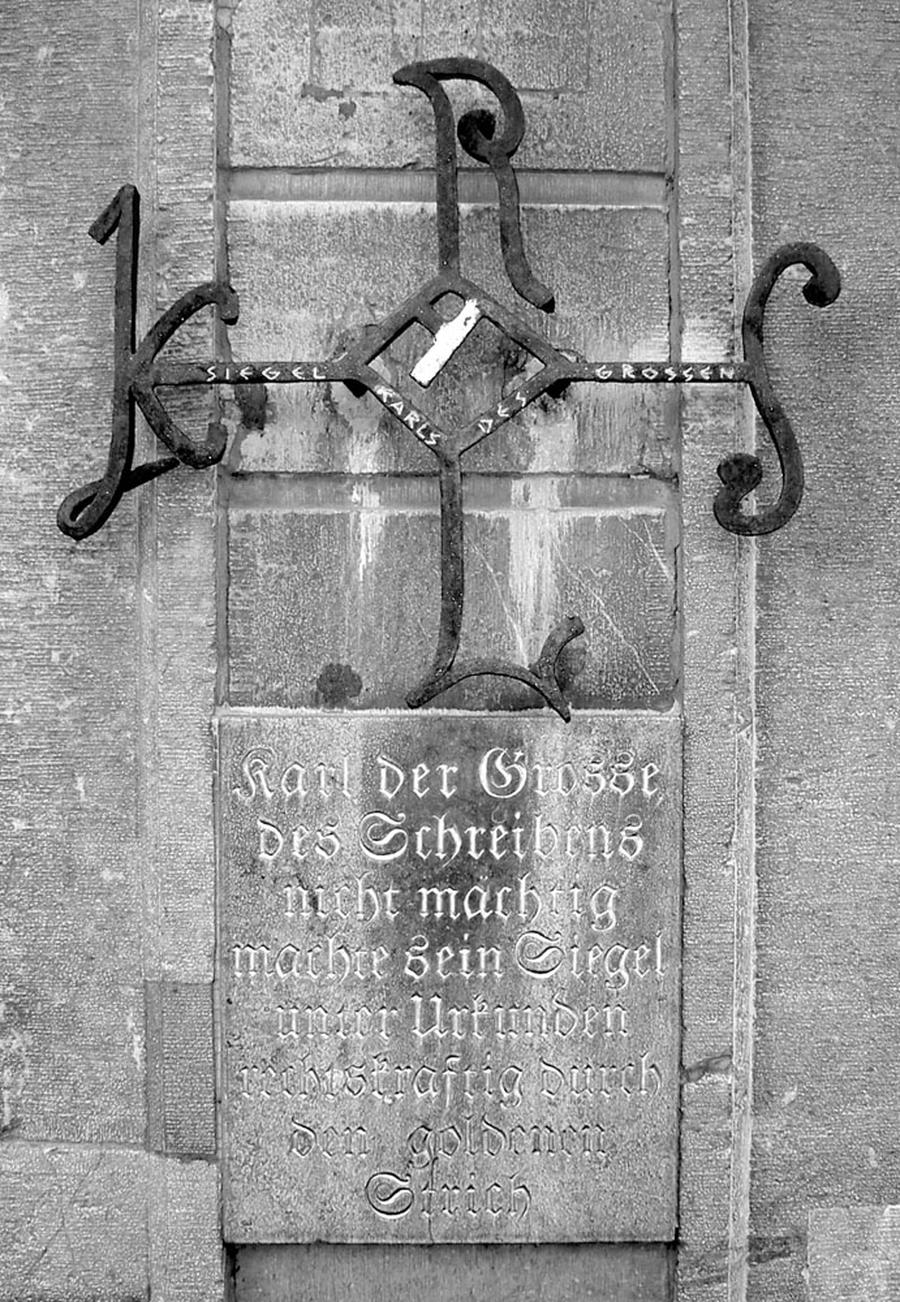 K R S L
SIEGEL KARLS DES GROSSEN
Karl der Grosse,
des Schreibens
nicht mächtig
machte sein Siegel
unter Urkunden
rechtskräftig durch
den goldenen
Strich